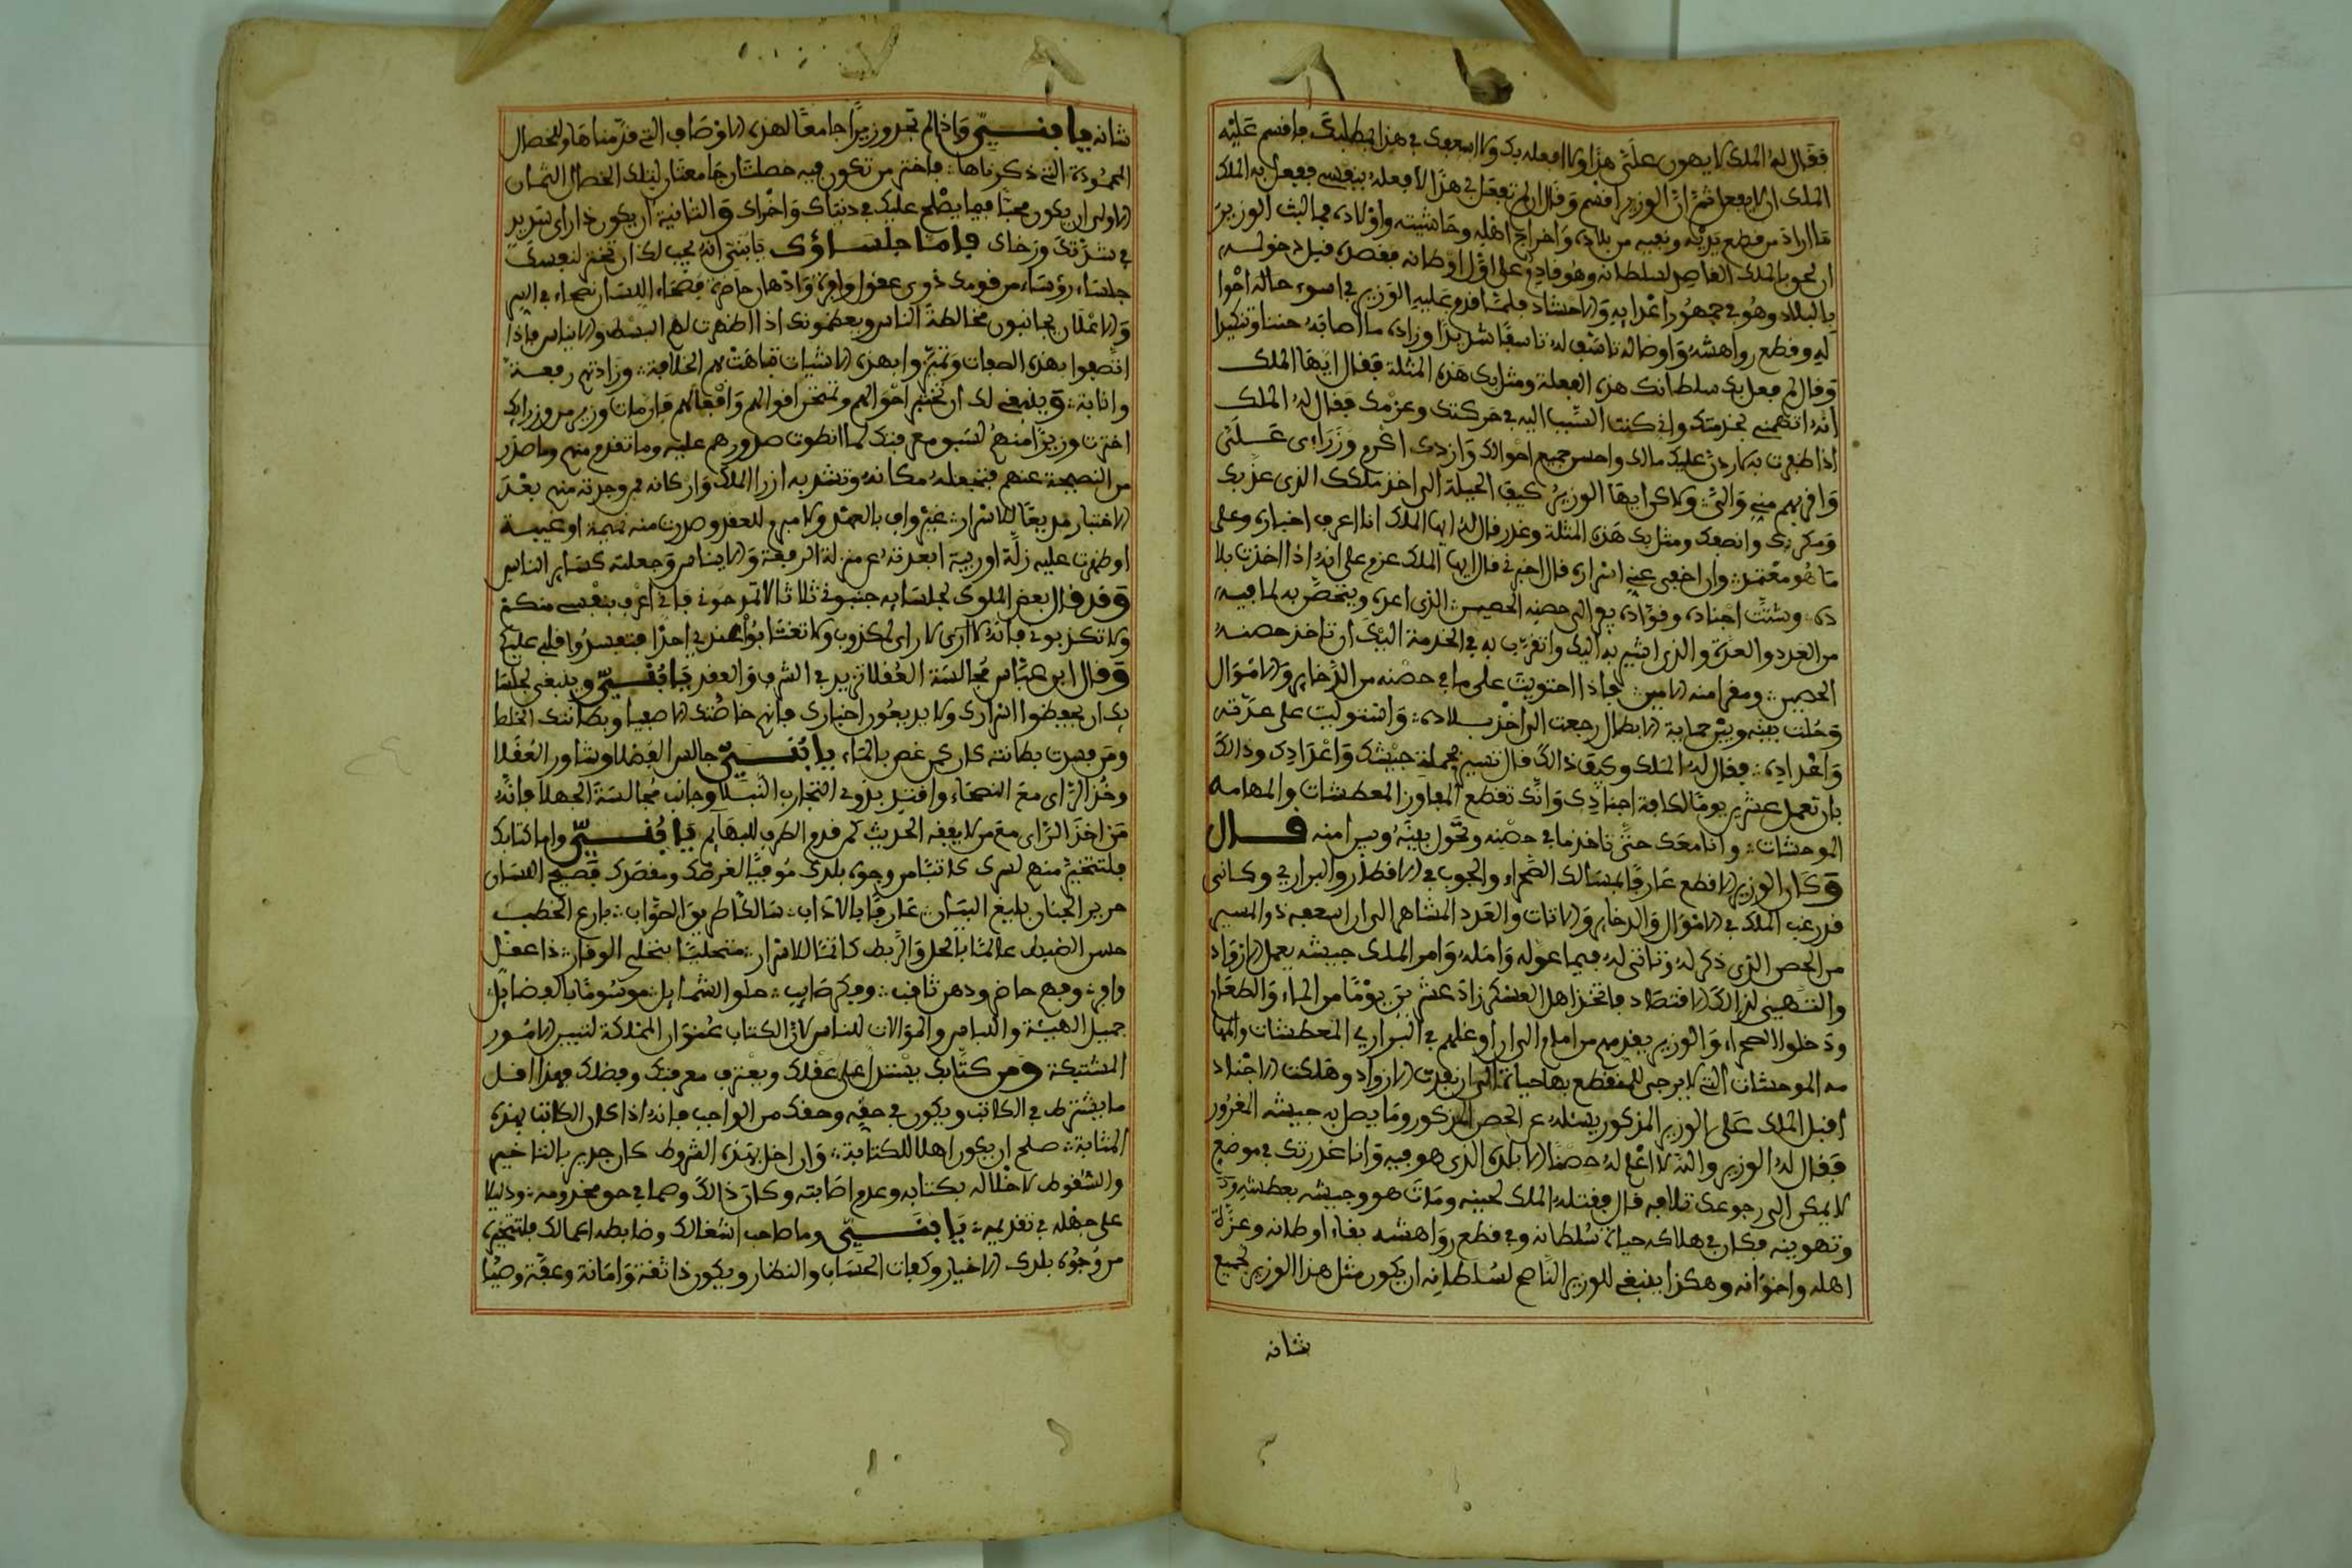 فقال له الملك لا يهون علي هذا ولا افعله بك ولا اسعفك في هذا بطلبك فاقسم عليه
الملك ان لا يفعل ثم ان الوزير اقسم وقال ان لم تفعل في هذا لافعله بنفسي ففعل به الملك
ما اراد من قطع يديه ونفيه من بلاده واخراج اهله وحاشيته واولاده فما لبث الوزير
ان لحق بالملك القاصد لسلطانه وهو قادم على اول اوطانه فقصده قبل دخوله
بالبلاد وهو في جمهور اعرابه والاحشاد فلما قدم عليه الوزير في اسوء حاله احوا
له وقطع رواهشه واوصاله تاسف له تاسفا شديدا وزاده ما اصابه حننا وتنكيرا
وقال لم فعل بك سلطانك هذه الفعلة ومثل بك هذه المثلة فقال ايها الملك
انه اتهمني بخدمتك واني كنت السبب اليه في حركتك وعزمك فقال له الملك
اذا ظفرت به نارد عليك مالك واحسن جميع احوالك وازدك اكرم وزراءي علي
واقربهم مني والي ولاكن ايها الوزير كيف الحيلة الى اخذ ملكك الذي غر بك
ومكر بك وانصفك ومثل بك هذه المثلة وغدر قال له ايها الملك انا اعرف اخباره وعلى
ما هو معتمد وان اخفى عني اسراره قال اخبرني قال ايها الملك عزم على انه اذا اخذت بلا
ده وشتت اجناده وقواده يفر الى حصنه الحصين الذي اعده ويتحصن به لما فيه
من العدد والعدة والذي اشير به اليك واتقرب به في الخدمة اليك ان تاخذ حصنه
الحصين ومفرا منه الامين فاذا احتويت على ما في حصنه من الذخاير والاموال
وحلت بينه وبين حماية الابطال رجعت الى اخذ بلاده واستوليت على عدته
واعداده فقال له الملك وكيف ذالك قال تسير بجملة جيشك واعدادك وذالك
بان تعمل عشرين يوما لكافة اجنادك وانك تقطع المفاوز المعطشات والمهامه
الموحشات وانا معك حتى تاخذ ما في حصنه وتحول بينه وبين امنه قال
وكان الوزير الاقطع عارفا بمسالك الصحراء والجوب في الاقطار والبراري وكانى
قد رغب الملك في الاموال والدخاير والاثات والعدد المشاهر الى ان اسعفه ذو المسير
من الحصن الذي ذكر له وتاتى له فيما عوله وامله وامر الملك جيشه بعمل الازواد
والتهيئ لذالك الاقتصاد فاتخذ اهل العسكر زاد عشرين يوما من الماء والطعام
ودخلوا الصحراء والوزير يقدمهم من امام الى ان اوغلهم في البراري المعطشات والمها
مه الموحشات التي لا يرجى للمنقطع بها حياة الى ان نفدت الازواد وهلكت الاجناد
اقبل الملك على الوزير المذكور يسئله عن الحصن المذكور وما يصل به جيشه المغرور
فقال له الوزير والله لا اعلم له حصنا الا بلده الذي هو فيه وانا غدرتك في موضع
لا يمكن الى رجوعك تلافيه قال فقتله الملك لحينه ومات هو وجيشه بعطشه ود
وتهوينه فكان في هلاكه حياة سلطانه وفي قطع رواهشه بقاء اوطانه وعزة
اهله واخوانه وهكذا ينبغي للوزير الناصح لسلطانه ان يكون مثل هذا الوزير لجميع
شانه
شانه يا بني واذا لم تجد وزيرا جامعا لهذه الاوصاف التي قدمناها والخصال
المحمودة التي ذكرناها فاختر من تكون فيه خصلتان جامعتان لتلك الخصال الثمان
الاولى ان يكون محبا فيما يصلح عليك في دنياك واخراك والثانية ان يكون ذا راي سديد
في شدتك ورخاك فاما جلساؤك يا بني انه يجب لك ان تختر لنفسك
جلساء رؤساء من قومك ذوى عقول وافرة واذهان حاضرة فصحاء اللسان نصحاء في السر
والاعلان يجانبون مخالطة الناس ويعظمونك اذا اظهرت لهم البسط والايناس فاذا
اتصفوا بهذه الصفات وتميزوا بهذه الاشيات تباهت بهم الخلافة وزادتهم رفعة
وانابة وينبغي لك ان تختبر احوالهم وتمتحن اقوالهم وافعالهم فان مات وزير من وزرايك
اخترت وزيرا منهم لسبق معرفتك لما انطوت صدورهم عليه وما تقدم منهم وما صدر
من النصيحة عنهم فتجعله مكانه وتشد به ازر الملك وان كان من وجدته منهم بعد
الاختبار مذيعا للاسرار غير واف بالعهد ولا مبرم للعقد وصدرت منه نميمة او غيبة
او ظهرت عليه زلة او ريبة ابعدته عن منزلة الرفعة والايناس وجعلته كساير الناس
وقد قال بعض الملوك لجلسايه جنبوني ثلاثا لا تمدحوني فاني اعرف بنفسي منكم
ولا تكذبوني فانه لا راى لمكذوب ولا تغتابوا عندي احدا فتفسدوا قلبي عليكم
وقال ابن عباس مجالسة العقلا تزيد في الشرف والعقد يا بني وينبغي لجلسا
يك ان يحفظوا اسرارك ولا يذيعون اخبارك فانهم خاصتك الاصفيا وبطانتك الخلطا
ومن فسدت بطانته كان كمن غص بالماء يا بني جالس الفضلا وشاور العقلا
وخذ الراى مع النصحاء واقتد بذوي التجارب النبلا وجانب مجالسة الجهلا فانه
من اخذ الراى مع من لا يفقه الحديث كمن قدم الطرف للبهايم يا بني واما كتابك
فلتتخير منهم لسرك كاتبا من وجوه بلدك موفيا لغرضك ومقصدك فصيح اللسان
حديد الجنان بليغ البيان عارفا بالاداب سالكا طريق الصواب بارع الخطب
حسن الضبط عالما بالحل والربط كاتما للاسرار متحليا بتحلي الوقار ذا عقل
وافر وفهم حاضر وذهن ثاقب وفكر صايب حلو الشمايل موسوما بالفضايل
جميل الهيئة واللباس والموالات للناس لان الكتاب عنوان المملكة لتيسير الامور
المشتبكة ومن كتابك يستدل على عقلك ويعترف معرفتك وفضلك فهذا اقل
ما يشترط في الكاتب ويكون في حقه وحقك من الواجب فانه اذا كان الكاتب بهذه
المثابة صلح ان يكون اهلا للكتابة وان اخل بهذه الشروط كان جدير بالتاخير
والسقوط لاخلاله بكتابه وعدم اصابته وكان ذالك وصما في حق مخدومه ودليلا
على جهله في تقديمه يا بني وما صاحب اشغالك وضابط اعمالك فلتتخيره
من وجوه بلدك الاخيار وكفات الحساب والنظار ويكون ذا ثقة وامانة وعفة وصيا